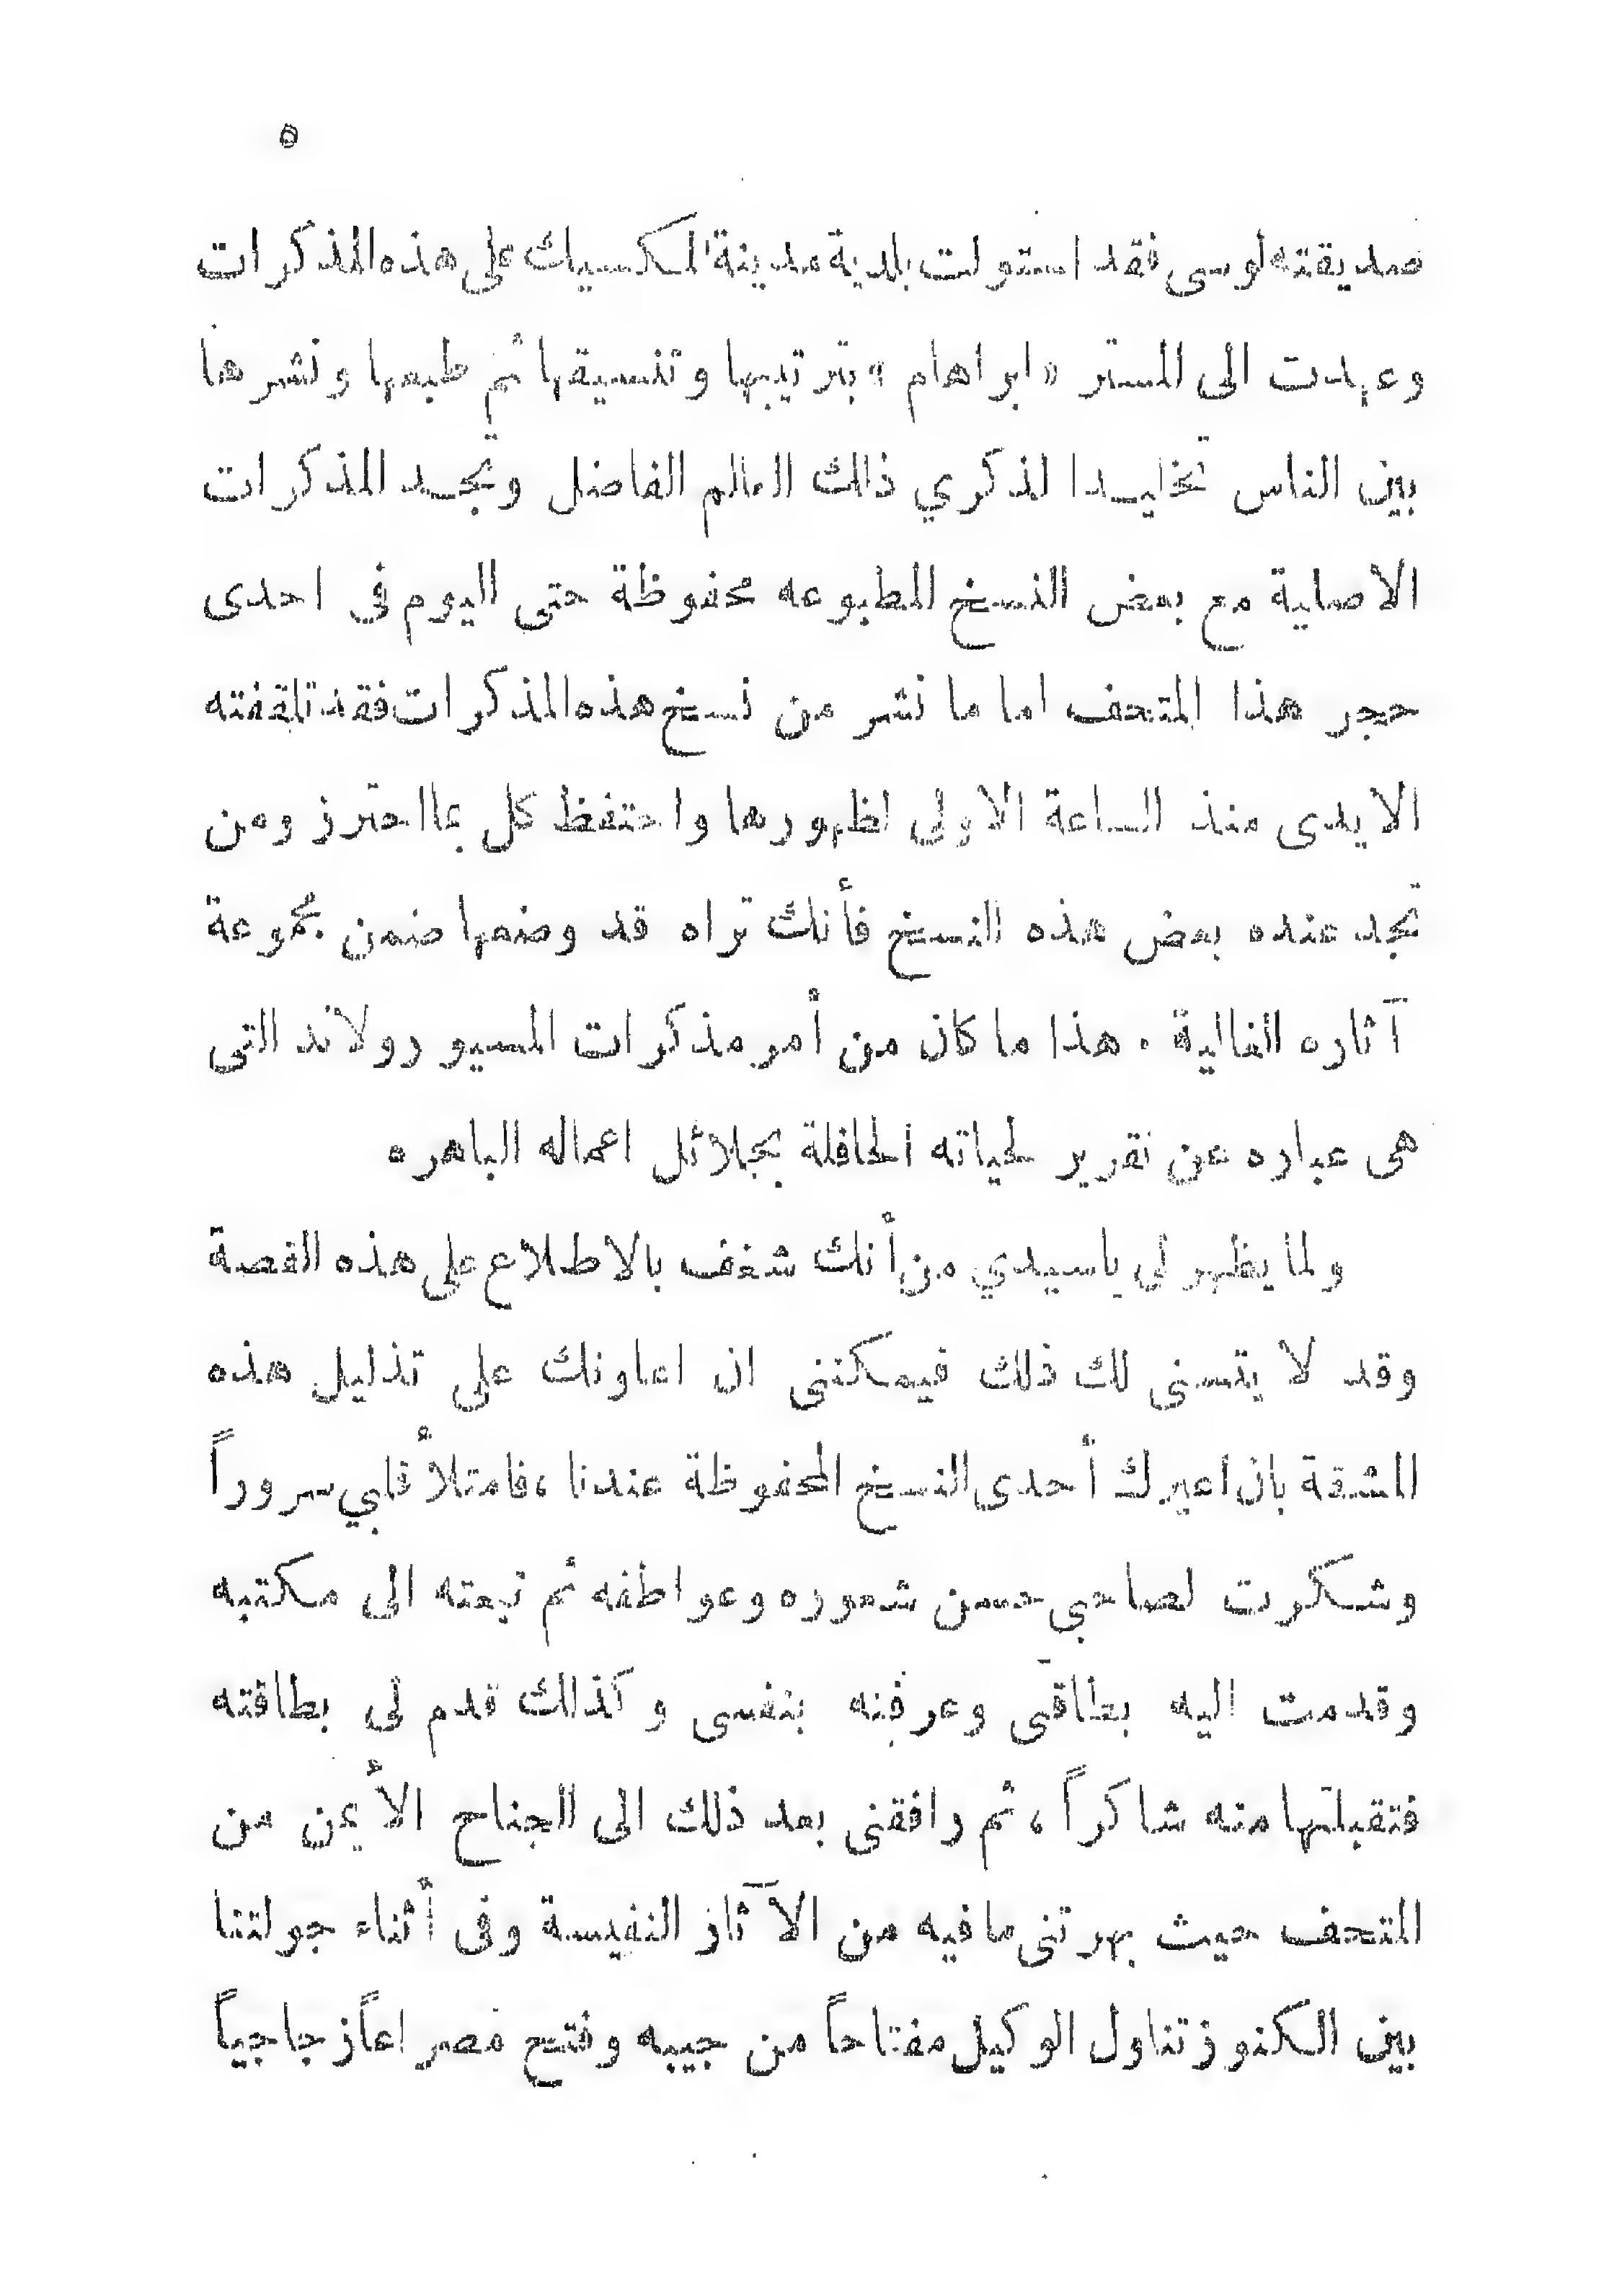 ٥
صديقته لوسى فقد استولت بلدية مدينة المكسيك على هذه المذكرات
وعهدت الى المستر «ابراهام» بترتيبها وتنسيقها ثم طبعها ونشرها
بين الناس تخليدا لذكري ذلك العالم الفاضل وتجد المذكرات
الاصلية مع بعض النسخ المطبوعه محفوظة حتى اليوم فى احدى
حجر هذا المتحف اما ما نشر من نسخ هذه المذكرات فقد تلقفته
الايدى منذ الساعة الاولى لظهورها واحتفظ كل بما احترز ومن
تجد عنده بعض هذه النسخ فأنك تراه قد وضعها ضمن مجموعة
آثاره الغالية . هذا ما كان من أمر مذكرات المسيو رولاند التى
هى عباره عن تقرير لحياته الحافلة بجلائل اعماله الباهره
ولما يظهر لى ياسيدي من أنك شغف بالاطلاع على هذه القصة
وقد لا يتسنى لك ذلك فيمكننى ان اعاونك على تذليل هذه
المشقة بان اعيرك أحدى النسخ المحفوظة عندنا ، فامتلأ قلبي سروراً
وشكرت لصاحبي حسن شعوره وعواطفه ثم تبعته الى مكتبه
وقدمت اليه بطاقتى وعرفنه بنفسى وكذلك قدم لى بطاقته
فتقبلتها منه شاكراً ، ثم رافقنى بعد ذلك الى الجناح الأيمن من
المتحف حيث بهرتنى ما فيه من الآثار النفيسة وفى أثناء جولتنا
بين الكنوز تناول الوكيل مفتاحاً من جيبه وفتح مصراعاً زجاجياً